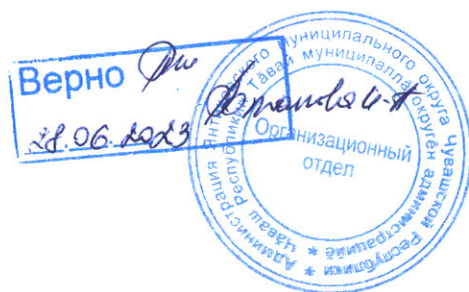 Верно
28.06.2023
Администрация Янтиковского муниципального округа Чувашской Республики *
Чӑваш Республикин Тӑвай муниципаллӑ округӗн администрацийӗ *
Организационный
отдел